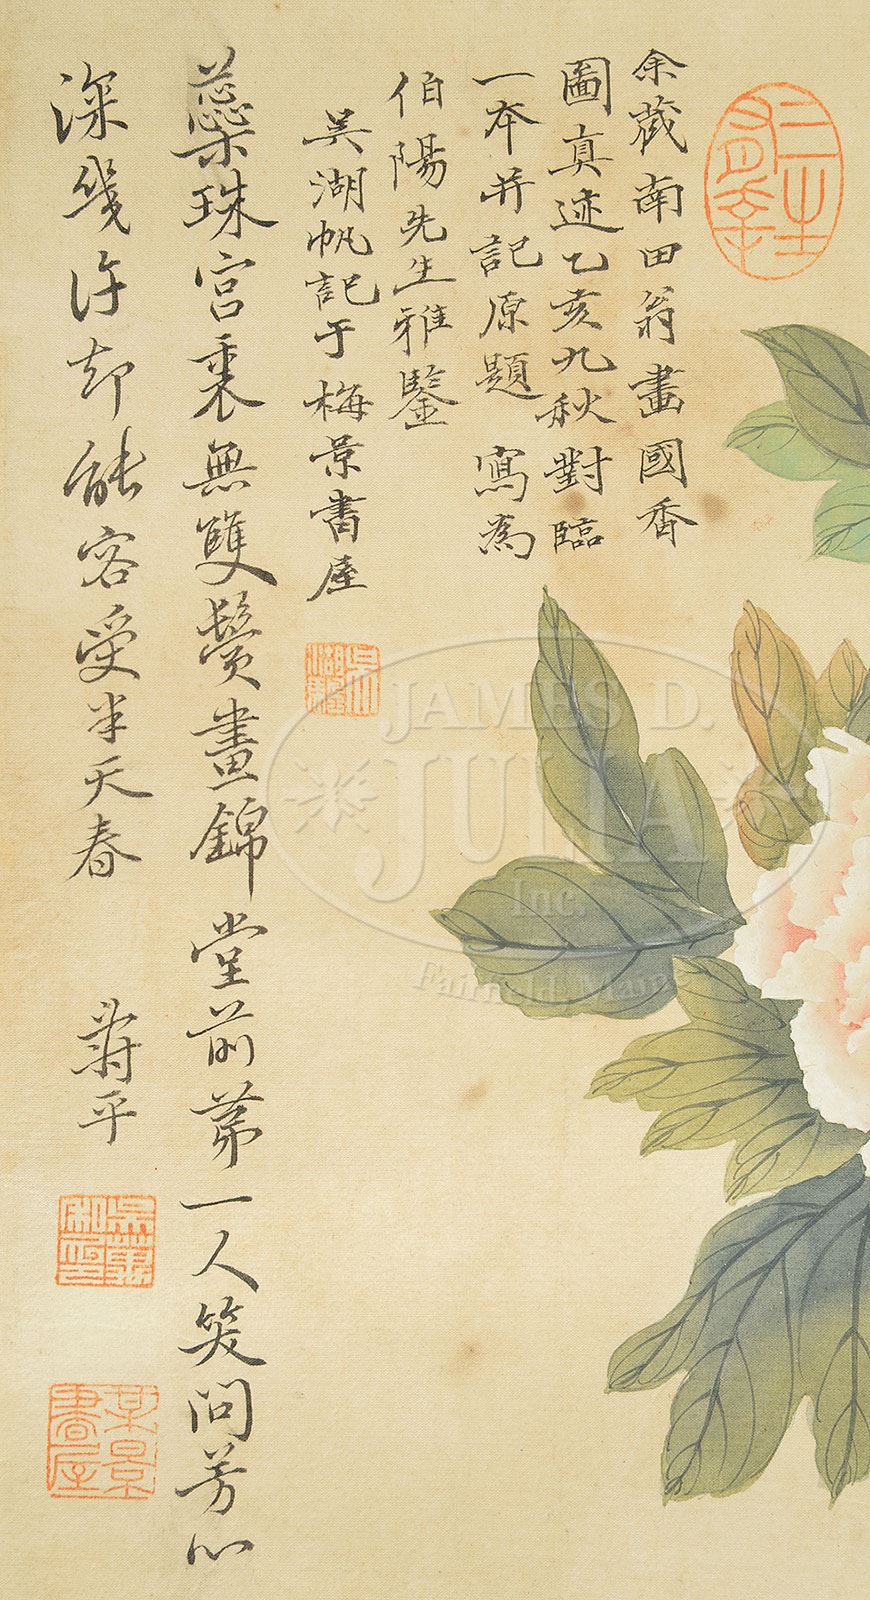 余藏南田翁畫國香
圖真迹乙亥九秋對臨
一本并記原題 寫為
伯陽先生雅鑒
吳湖帆記于梅景書屋
蘂珠宮裏無雙鬢畫錦堂前苐一人笑問芳心
深幾許却能容受半天春
壽平
JAMES D.
JULIA
Inc.
Fairfield, Maine